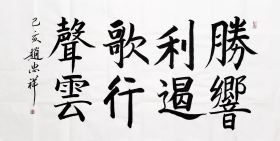 勝響
利遏
歌行
聲雲
己亥趙忠祥